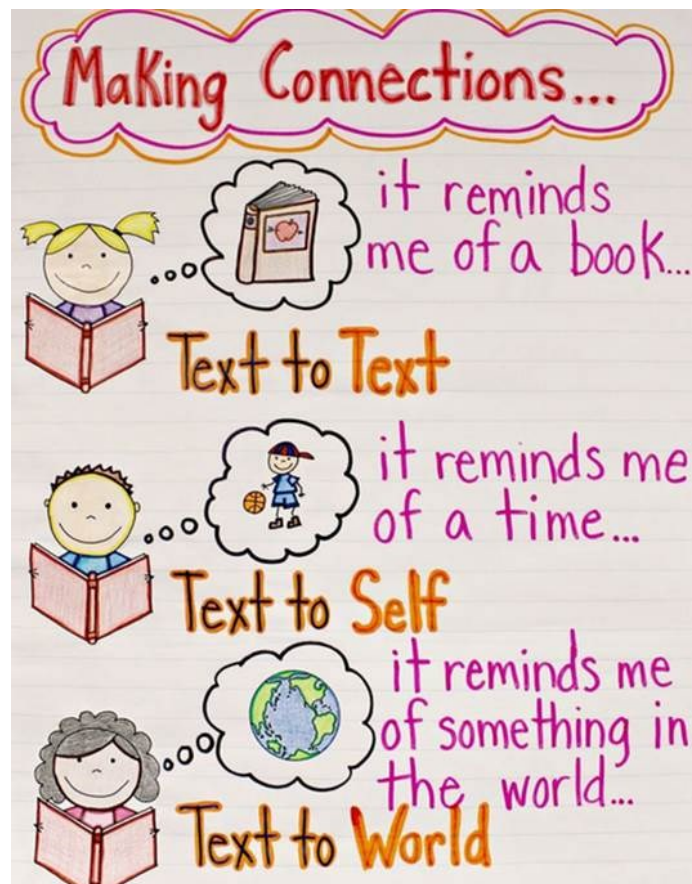 Making Connections...
it reminds
me of a book...
Text to Text
it reminds me
of a time...
Text to Self
it reminds me
of something in
the world...
Text to World